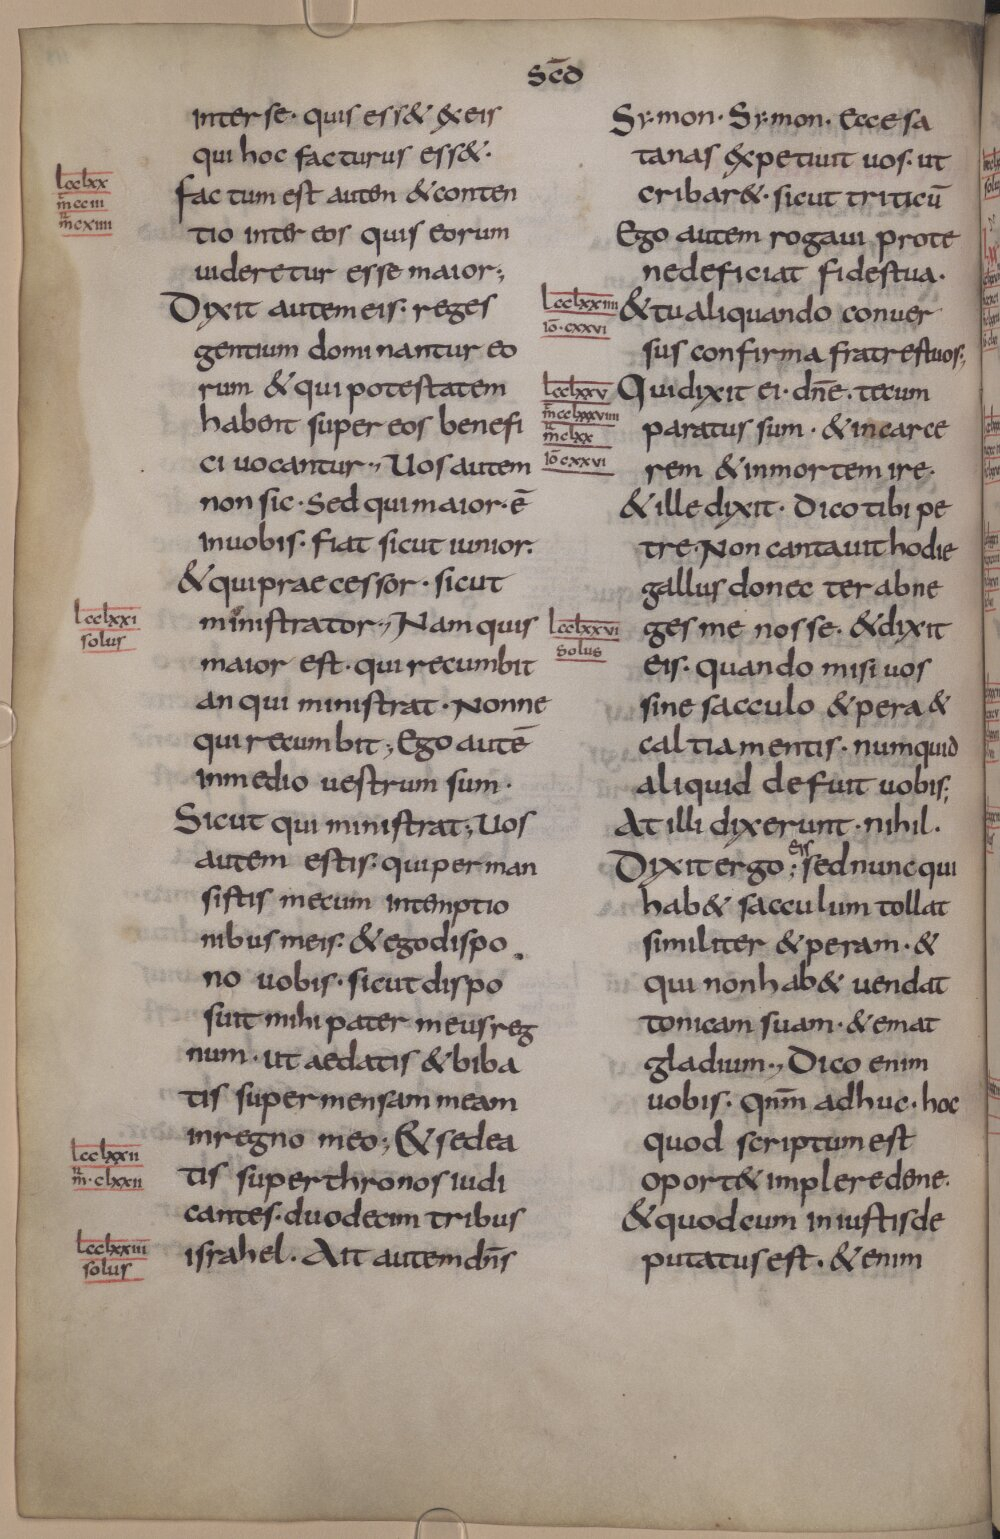 sc̄d
inter se· quis ess& ex eis
qui hoc facturus ess&·
lcclxx
m̄ cciii
m̄ cxiiii
factum est autem & conten
tio inter eos quis eorum
uideretur esse maior;
Dixit autem eis· reges
gentium dominantur eo
rum & qui potestatem
habent super eos benefi
ci uocantur·, Uos autem
non sic· Sed qui maior· ē
in uobis· fiat sicut iunior·
& qui praecessor· sicut
lcclxxi
solus
ministrator·, Nam quis
maior est· qui recumbit
an qui ministrat· Nonne
qui recumbit; Ego autē
in medio uestrum sum·
Sicut qui ministrat; Uos
autem estis· qui perman
sistis mecum in temptio
nibus meis· & ego dispo
no uobis· sicut dispo
suit mihi pater meus reg
num· ut aedatis & biba
tis super mensam meam
in regno meo; & sedea
lcclxxii
m· clxxii
tis super thronos iudi
cantes· duodecim tribus
lcclxxiii
solus
israhel· Ait autem dn̄s
Symon· Symon· Ecce sa
tanas expetiuit uos· ut
cribar&· sicut triticū
Ego autem rogaui pro te
ne deficiat fides tua·
lcclxxiiii
iō· cxxvi
& tu aliquando conuer
sus confirma fratres tuos;
lcclxxv
m̄ cclxxxviiii
m̄ clxx
iō cxxvi
Qui dixit ei· dn̄e· tecum
paratus sum· & in carce
rem & in mortem ire·
& ille dixit· Dico tibi pe
tre· Non cantauit hodie
gallus donec ter abne
lcclxxvi
solus
ges me nosse· & dixit
eis· quando misi uos
sine sacculo & pera &
caltiamentis· numquid
aliquid defuit uobis;
At illi dixerunt· nihil·
Dixit ergo eis; sed nunc qui
hab& sacculum tollat
similiter & peram· &
qui non hab& uendat
tonicam suam· & emat
gladium·, Dico enim
uobis· qn̄m adhuc· hoc
quod scriptum est
oport& implere de me·
& quod cum iniustis de
putatus est· & enim